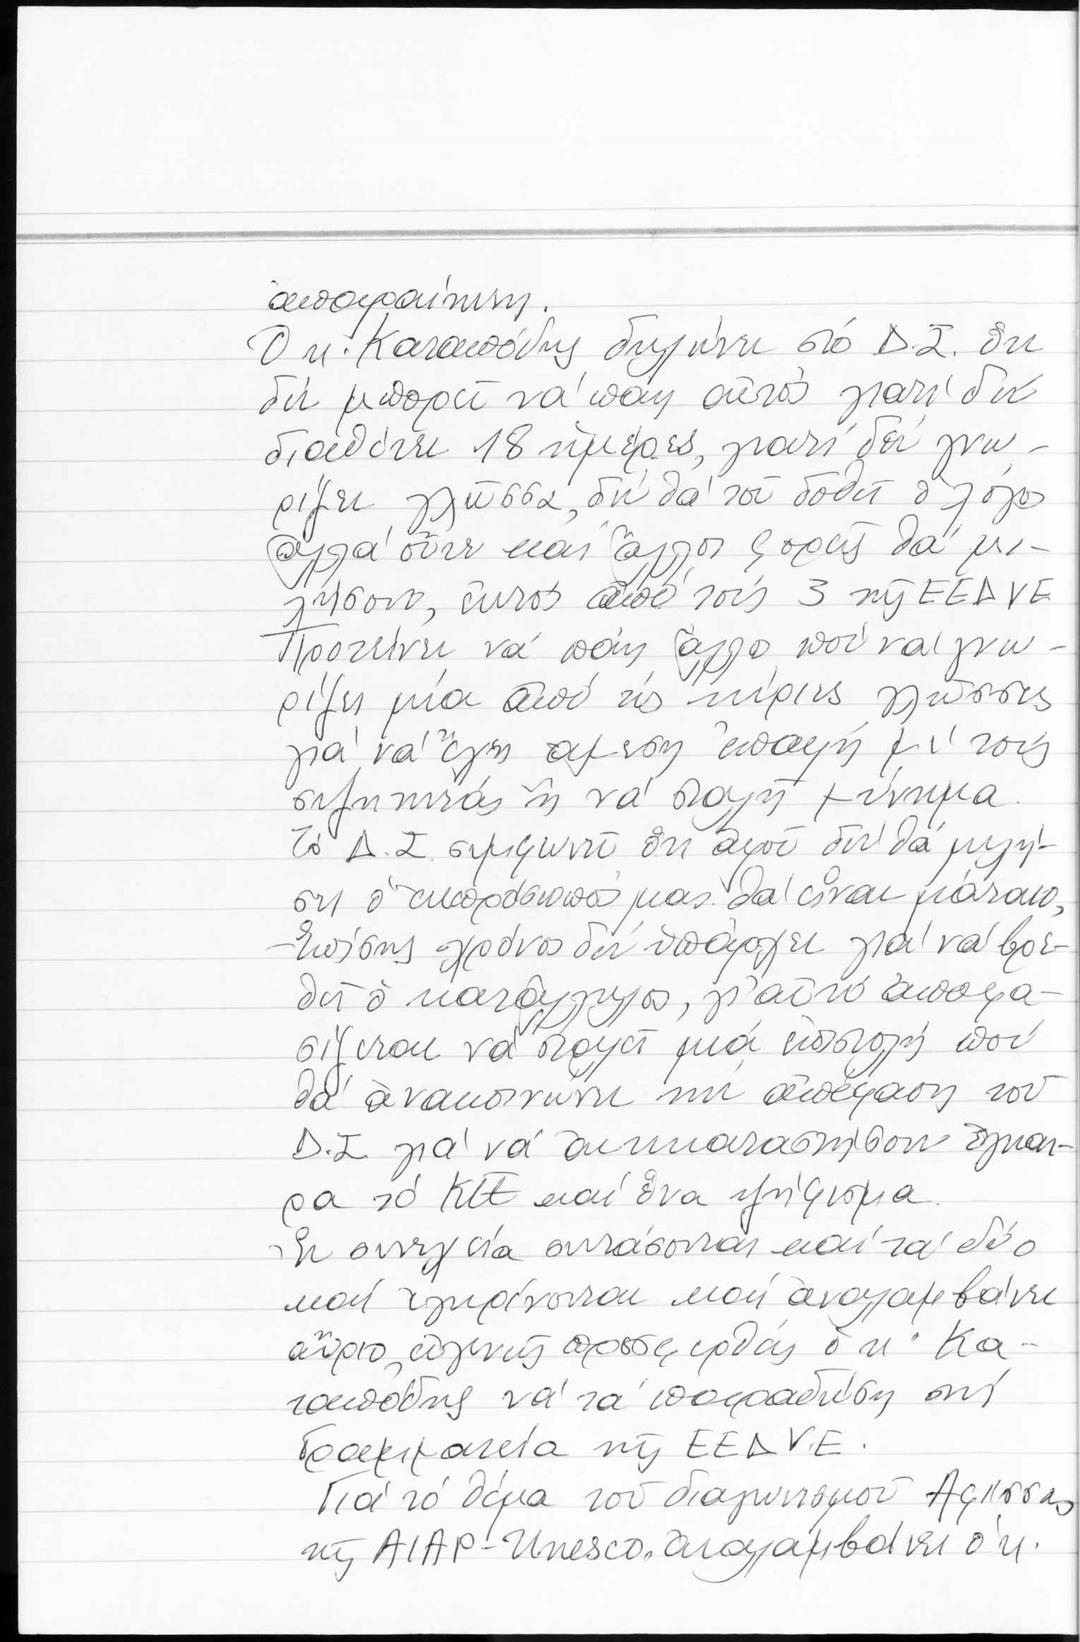 ἀπαραίτητη.
Ὁ κ. Καταπόδης δηλώνει στό Δ.Σ. ὅτι
δέν μπορεῖ νά πάη αὐτός γιατί δέν
διαθέτει 18 ἡμέρες, γιατί δέν γνω-
ρίζει γλῶσσα, δέν θά τοῦ δοθεῖ ὁ λόγος
ἀλλά οὔτε καί ἄλλοι φορεῖς θά μι-
λήσουν, ἐκτός ἀπό τούς 3 τῆς ΕΕΔΥΕ
Προτείνει νά πάη ἄλλος πού νά γνω-
ρίζει μία ἀπό τίς κύριες γλῶσσες
γιά νά ἔχει ἄμεση ἐπαφή μέ τούς
συζητητάς ἤ νά σταλῆ μήνυμα.
Τό Δ.Σ. συμφωνεῖ ὅτι ἀφοῦ δέν θά μιλή-
σει ὁ ἐκπρόσωπός μας θά εἶναι μάταιο,
Ἐπίσης χρόνος δέν ὑπάρχει γιά νά βρε-
θεῖ ὁ κατάλληλος, γι' αὐτό ἀποφα-
σίζεται νά σταλεῖ μιά ἐπιστολή πού
θά ἀνακοινώνει τήν ἀπόφαση τοῦ
Δ.Σ. γιά νά ἀντικαταστήσουν ἔγκαι-
ρα τό ΚΕΕ καί ἕνα ψήφισμα.
Ἐν συνεχεία συντάσονται καί τά δύο
καί ἐγκρίνονται καί ἀναλαμβάνει
αὔριο, εὐγενῶς προσφερθείς ὁ κ. Κα-
ταπόδης νά τά παραδώση στή
Γραμματεία τῆς ΕΕΔΥΕ.
Γιά τό θέμα τοῦ διαγωνισμοῦ Ἀφίσσας
τῆς AIAP-Unesco. ἀναλαμβάνει ὁ κ.